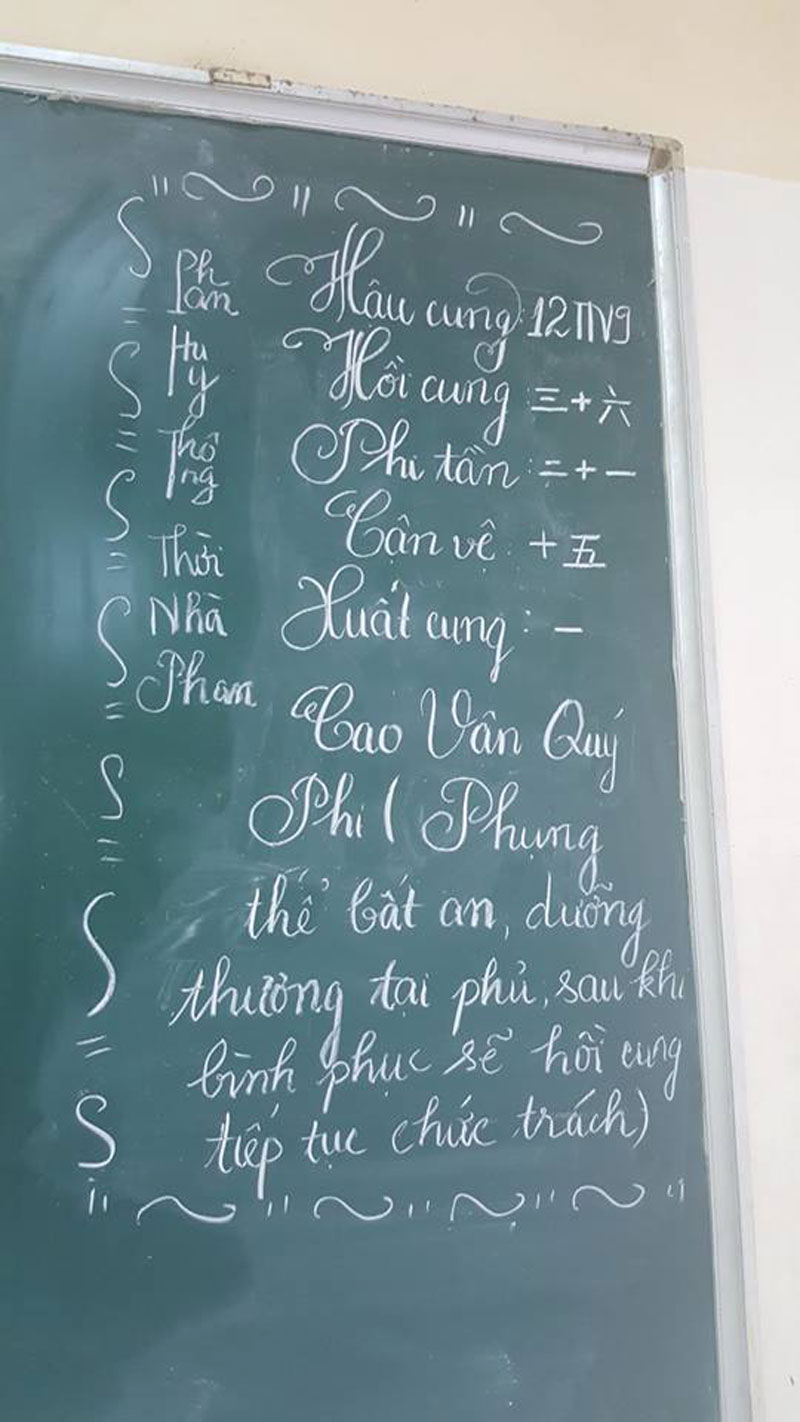 Phan
Huy
Thông
Thời
Nhà
Phan
Hậu cung: 12TNg
Hồi cung 三+六
Phi tần: 二+一
Cận vệ: +五
Xuất cung: 一
Cao Vân Quý
Phi ( Phụng
thể bất an, dưỡng
thương tại phủ, sau khi
bình phục sẽ hồi cung
tiếp tục chức trách)